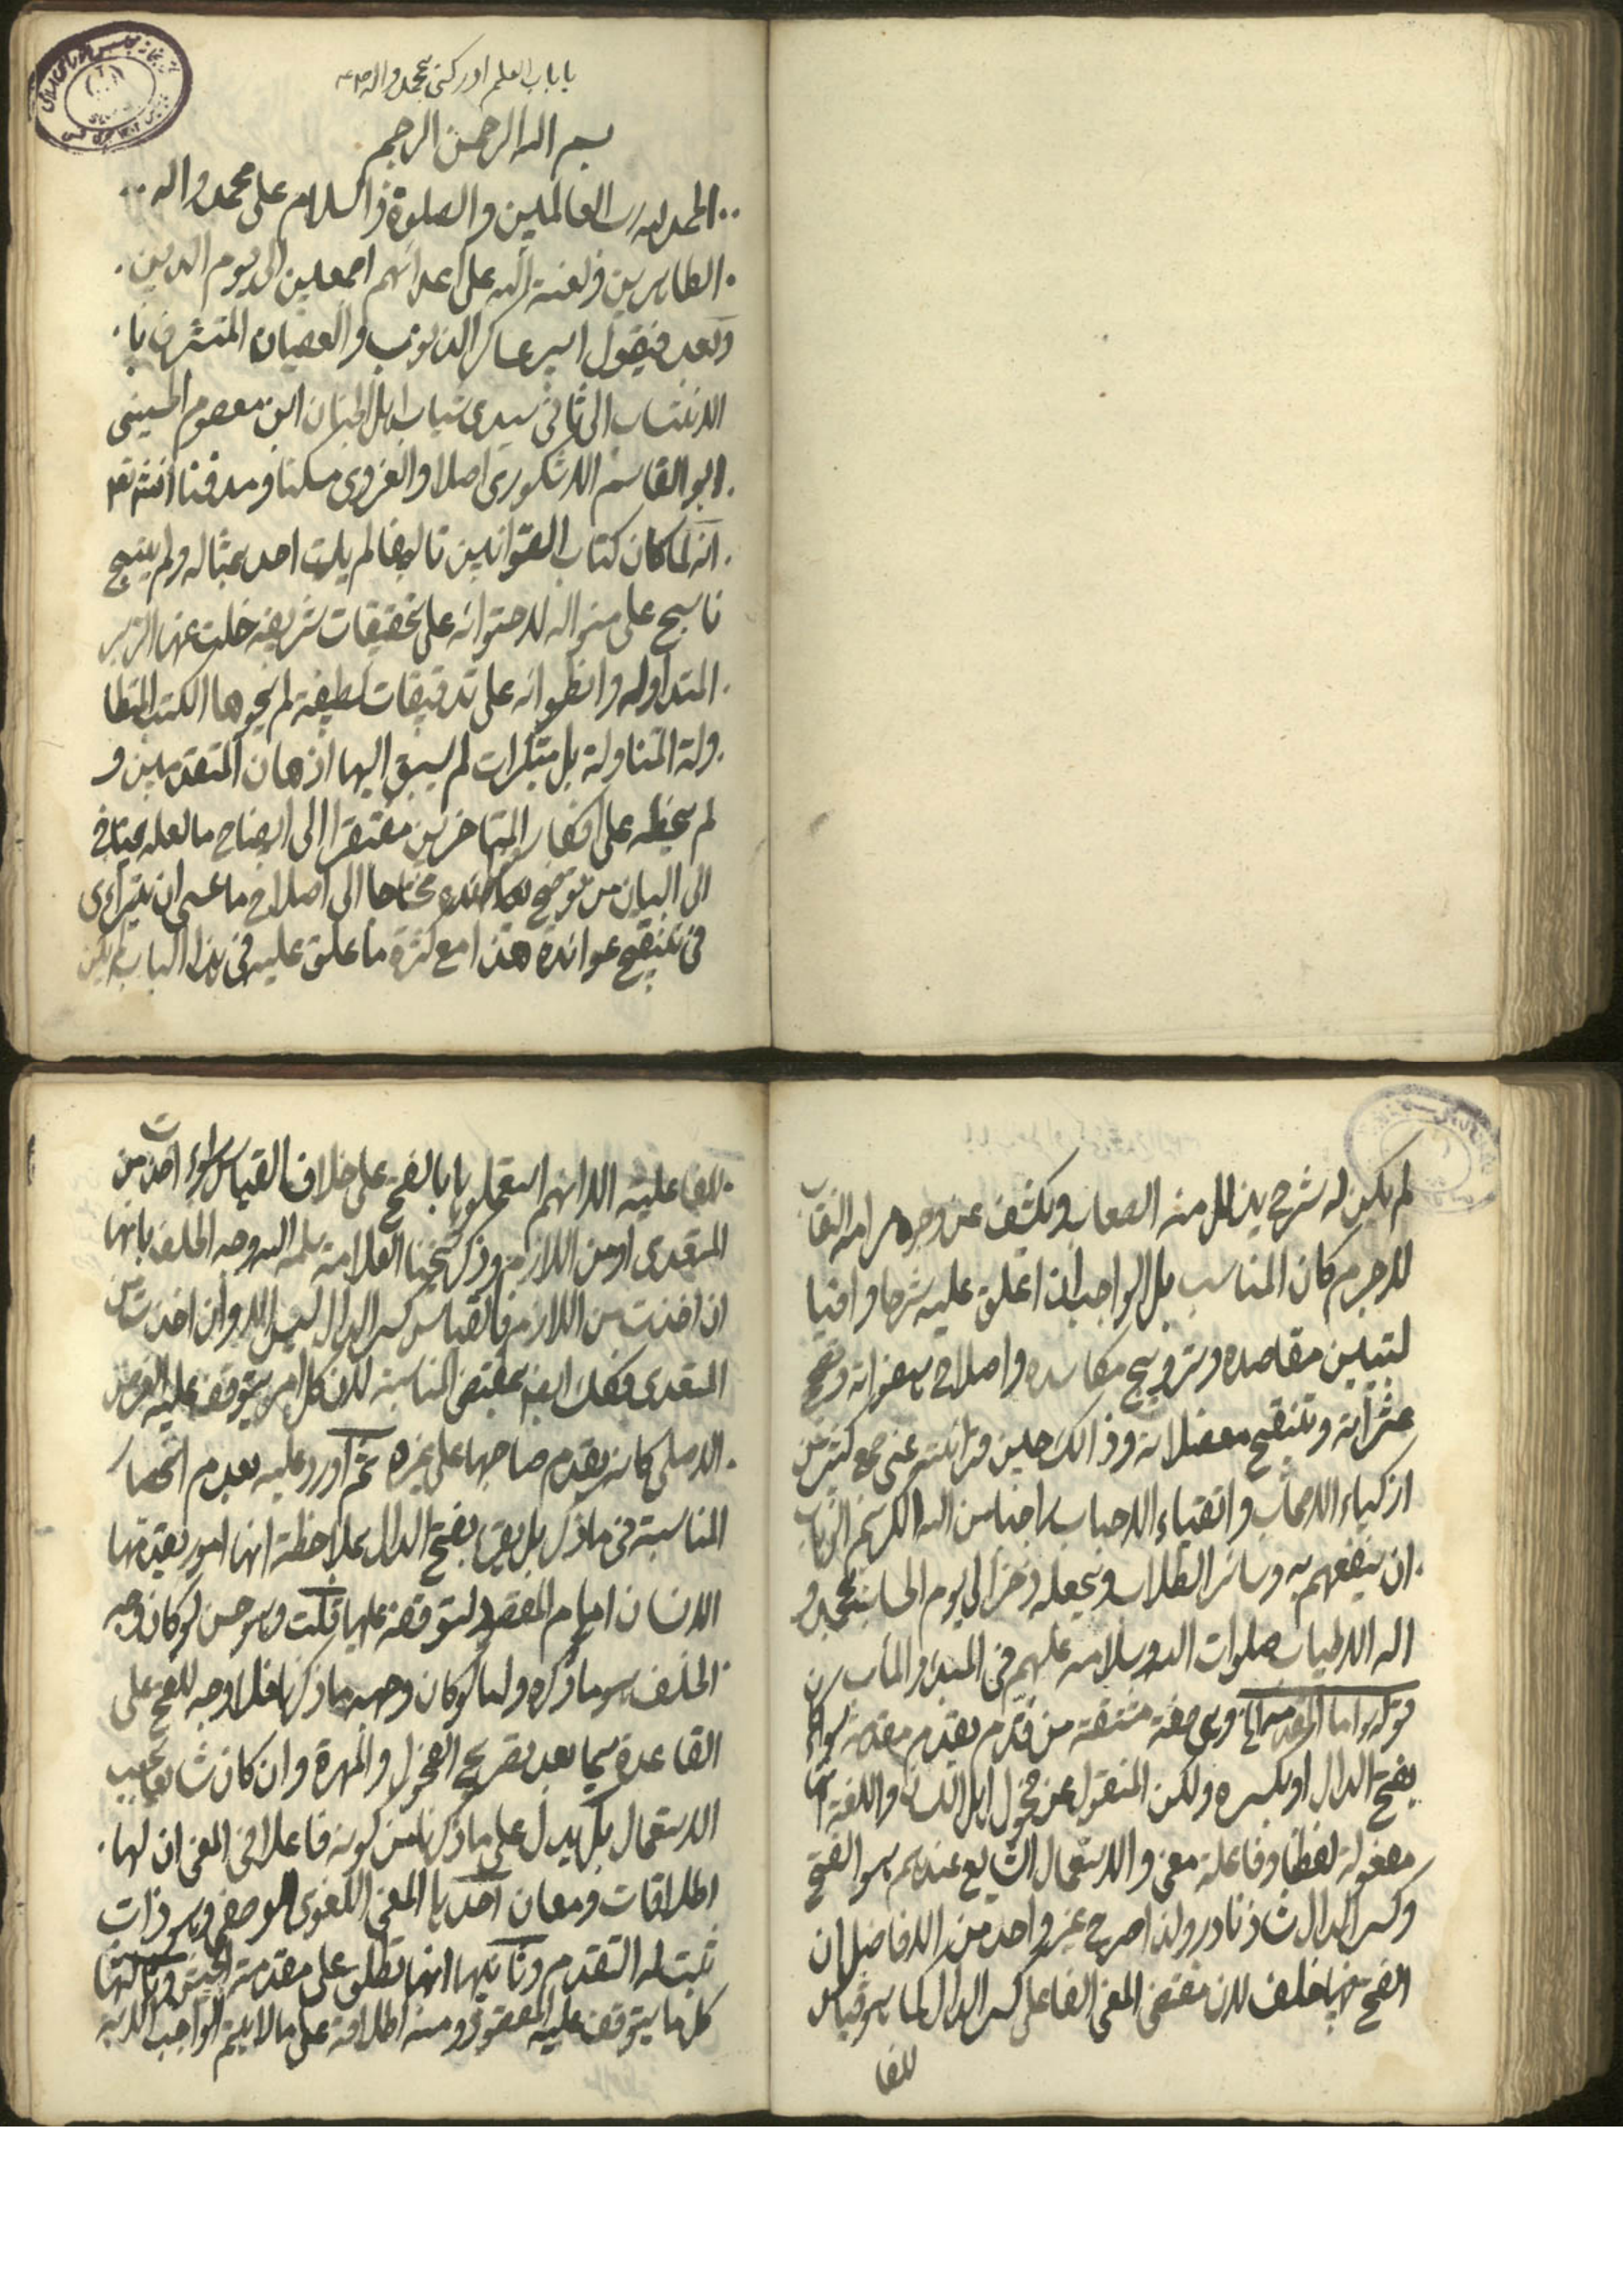 يا باب العلم ادركني بمحمد واله
بسم الله الرحمن الرحيم
الحمد لله رب العالمين والصلوة والسلام على محمد واله
الطاهرين ولعنة الله على اعدائهم اجمعين الى يوم الدين
وبعد فيقول اسير عساكر الذنوب والعصيان المتشرف با
لانتساب الى ثاني سيدي شباب اهل الجنان ابن معصوم الحسيني
ابو القاسم الاشكوري اصلا والغروي مسكنا ومدفنا انشاء الله
انه لما كان كتاب القوانين تاليفا لم يات احد بمثاله ولم ينسج
ناسج على منواله لاحتوائه على تحقيقات شريفة خلت عنها الزبر
المتداولة وانطوائه على تدقيقات لطيفة لم يحوها الكتب المتطا
ولة المتناولة بل مبتكرات لم يسبق اليها اذهان المتقدمين و
لم يخطر على افكار المتاخرين مفتقرا الى ايضاح ما لعله يحتاج
الى البيان من توضيح محتاجا الى اصلاح ما عسى ان يترائى
في تنقيح عوائده هذا مع كثرة ما علق عليه في هذا الباب لم يكن
لم يكن له شرح يذلل منه الصعاب ويكشف عن وجوه مرامه النقاب
لاجرم كان المناسب بل الواجب ان اعلق عليه شرحا وافيا
لتبيين مقاصده وترويج مكاسده واصلاح هفواته و
عثراته وتنقيح معضلاته وذالك حين قرائته عني جمع كثير من
ازكياء الاصحاب واتقياء الاحباب راجيا من الله الكريم الوهاب
ان ينفعهم به وسائر الطلاب ويجعله ذخرا لي يوم الحساب بمحمد و
اله الاطياب صلوات الله وسلامه عليهم في المبدء والمأب
قوله اما المقدمة وهي صفة مشتقة من قدم يقدم مقدمة سواء
بفتح الدال او بكسره ولكن المنقول عن فحول اهل اللسان واللغة انها
مفعولة لفظا وفاعلة معنى والاستعمال الشايع عندهم هو الفتح
وكسر الدال شاذ نادر ولذا صرح غير واحد من الافاضل ان
الفتح فيها خلف لان مقتضى المعنى الفاعلي كسر الدال كما هو قياس
للفا
للفاعلية الا انهم استعملوها بالفتح على خلاف القياس سواء اخذت من
المتعدي او من اللازم وذكر شيخنا العلامة سلمه الله وجه الخلف بانها
ان اخذت من اللازم فالقياس كسر الدال ليس الا وان اخذت من
المتعدي فكذلك ايضا بمقتضى المناسبة لان كل امر يتوقف عليه الغرض
الاصلي كانه يقدم صاحبها على غيره ثم اورد عليه بعدم انحصار
المناسبة في ما ذكر بل يقرء بفتح الدال بملاحظة انها امور يقدمها
الانسان امام المقصود لتوقفه عليها قلت وهو حسن لو كان وجه
الخلف هو ما ذكره واما لو كان وجهه ما ذكرنا فلا وجه للفتح على
القاعدة سيما بعد تصريح الفحول والمهرة وان كان شايعا بحسب
الاستعمال بل يدل على ما ذكرنا من كونه فاعلا في المعنى ان لها
اطلاقات ومعان احدها المعنى اللغوي الوصفي وهو ذات
ثبت له التقدم وثانيها انها تطلق على مقدمة الجيش وثالثها
كل ما يتوقف عليه المقصود ومنه اطلاقه على ما لا يتم الواجب الا به